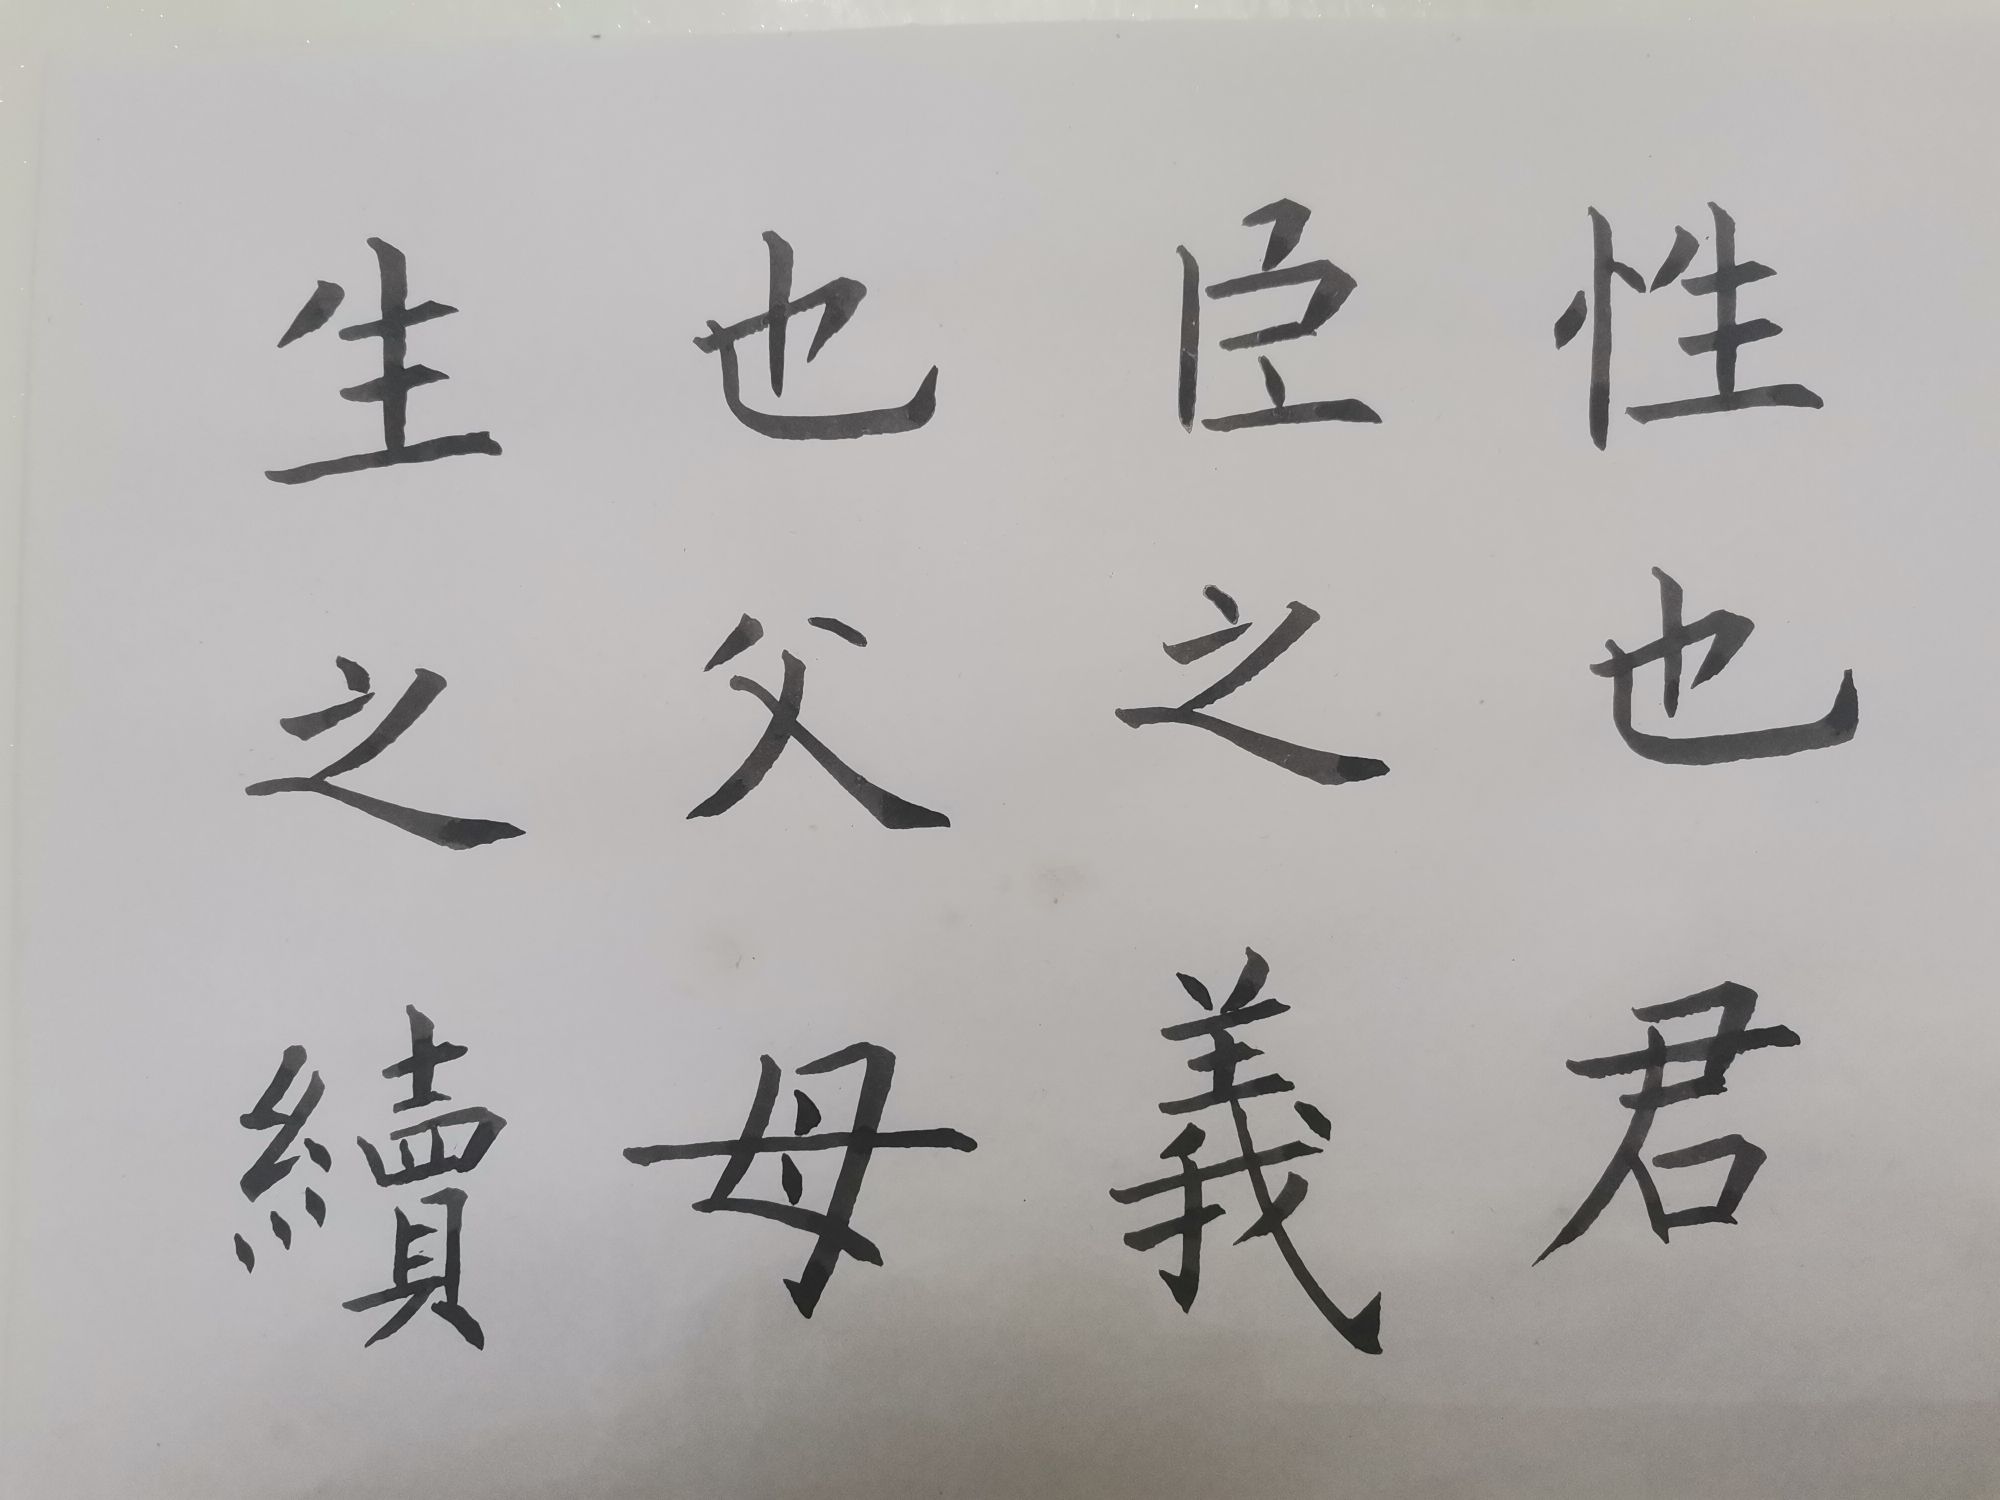 性也君
臣之義
也父母
生之續